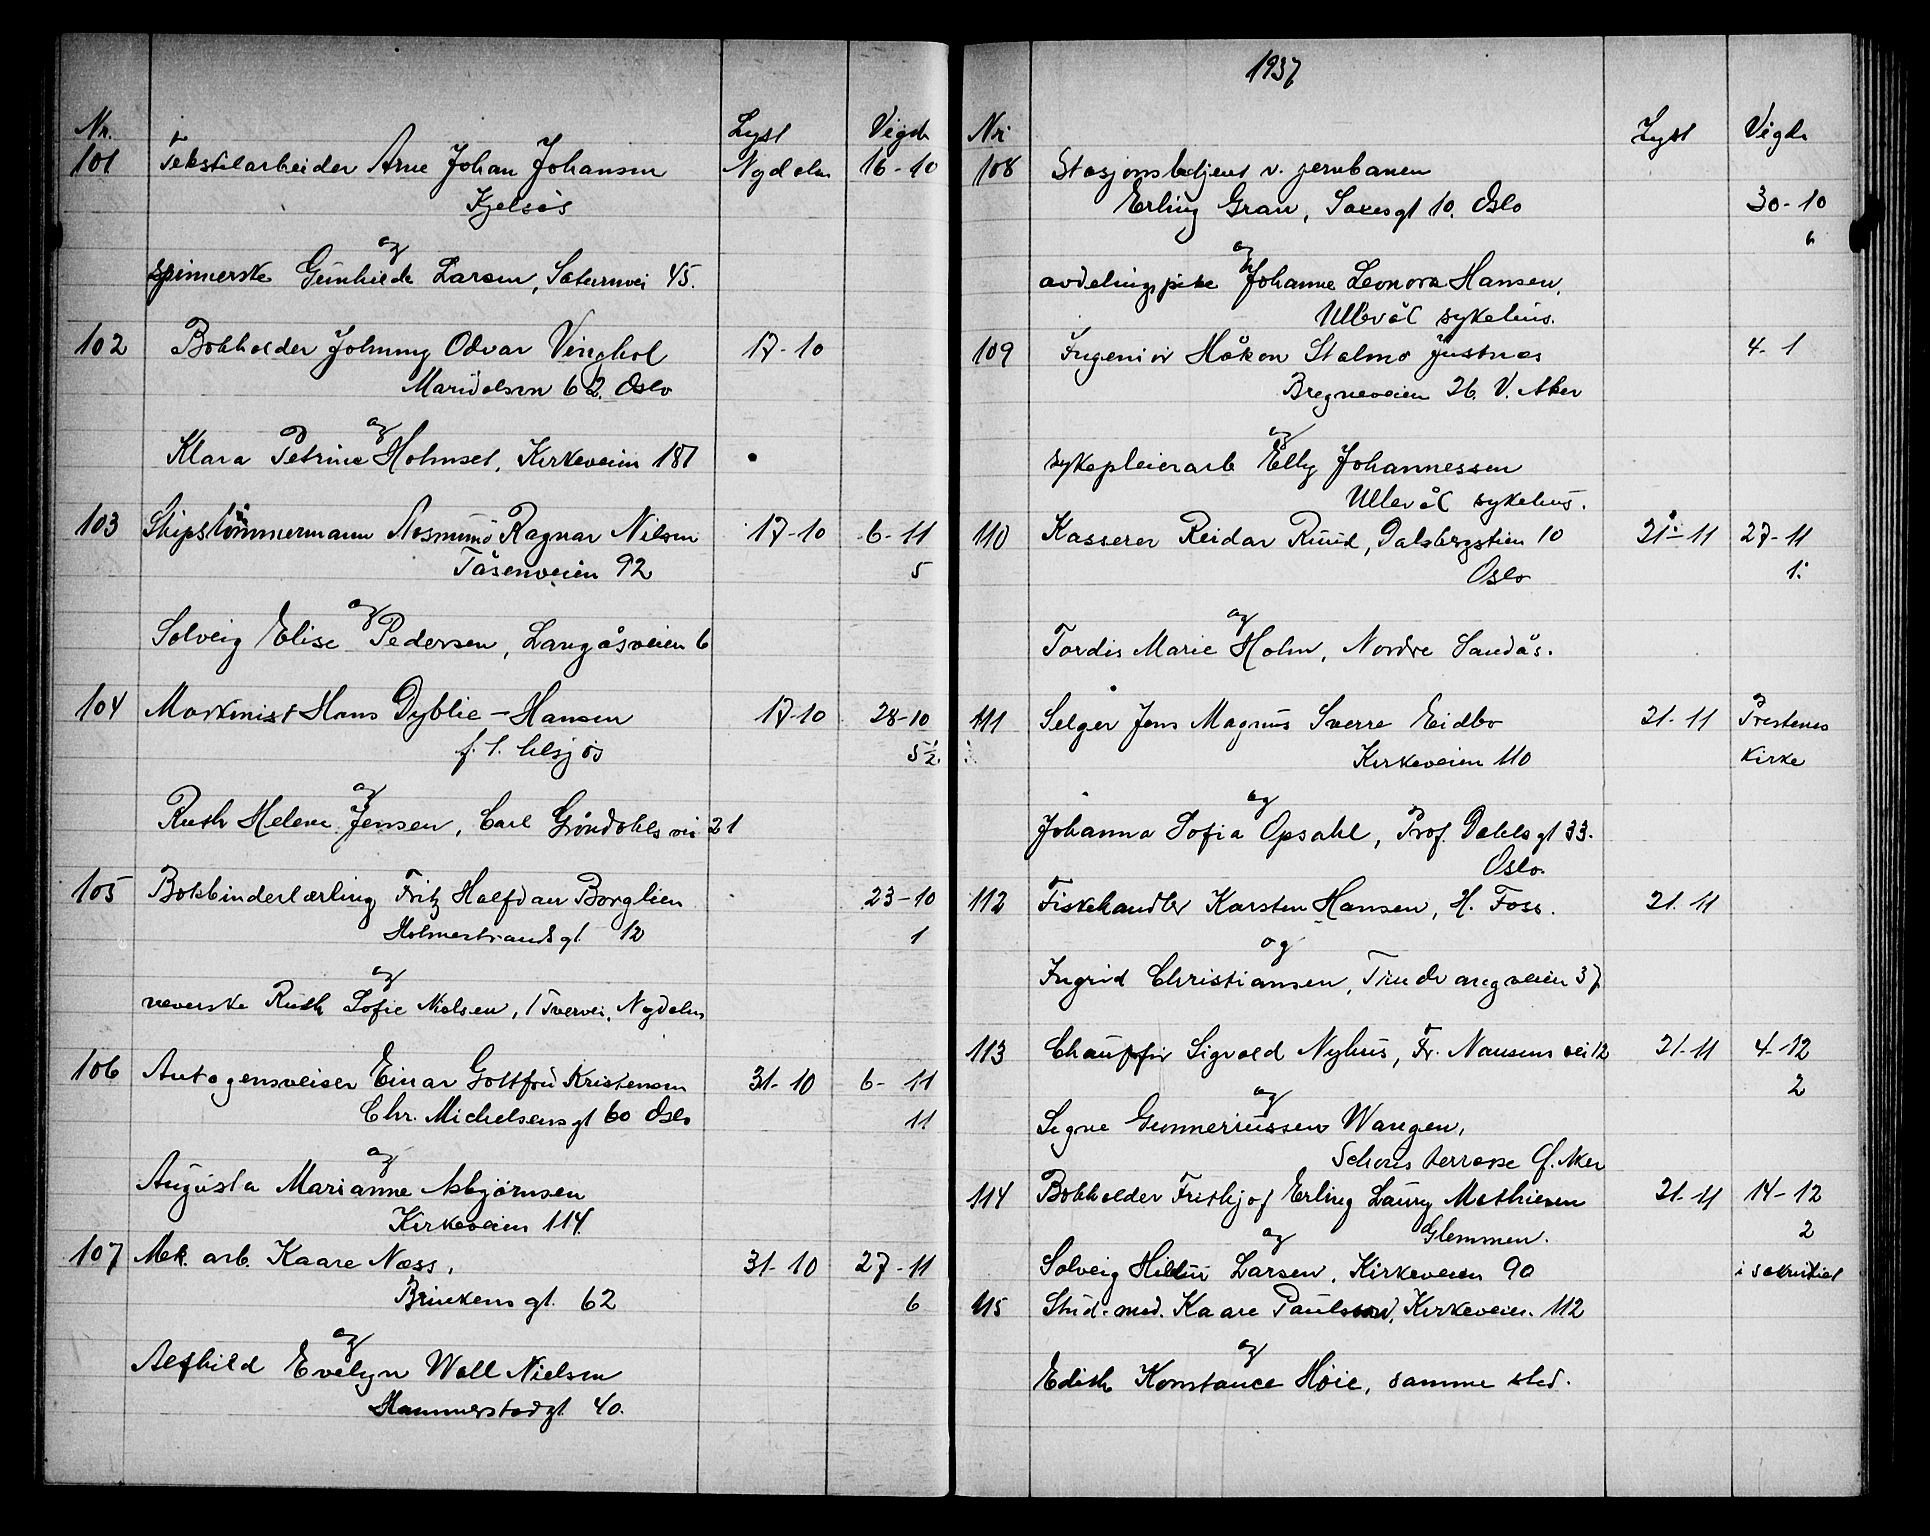 1937
Nr. Lyst Vigde
101 Tekstilarbeider Arne Johan Johansen Nydalen 16-10
Kjelsås
og
spinnerske Gunhilde Larsen, Saturnvei 45.
102 Bokholder Johnny Odvar 17-10
Maridalsvn 62. Oslo
og
Klara Petrine Holmsel, Kirkeveien 187
103 Skipstømmermann Ragnar Nilsen 17-10 6-11
Tåsenveien 92 5
og
Solveig Elise Pedersen, Langåsveien 6
104 Maskinist Hans Dyblie-Hansen 17-10 28-10
5½
og
Ruth Helene Jensen, Carl Grøndahls vei 21
105 Bokbinderlærling Fritz Halfdan Borglien 23-10
Holmestrandsgt. 12 1
og
veverske Ruth Sofie Nielsen, 1 Tvervei, Nydalen
106 Autogensveiser Einar Gottfri Kristensen 31-10 6-11
Chr. Michelsensgt 60 Oslo 11
og
Augusta Marianne Asbjørnsen
Kirkeveien 114.
107 Mek. arb. Kaare Næss, 31-10 27-11
Brinkens gt. 62 6
og
Alfhild Evelyn Wall Nielsen
Hammerstadgt. 40.
Nr Lyst Vigde
108 Stasjonsbetjent v. jernbanen
Erling Gran, Saxesgt 10. Oslo 30-10
6
og
avdelingspike Johanne Leonora Hansen,
Ullevål sykehus.
109 Ingeniør Håkon Stalmo Justnæs 4-1
Bregneveien 26. V. Aker
og
sykepleierask Elly Johannessen
Ullevål sykehus.
110 Kasserer Reidar Ruud, Dalsbergstien 10 21-11 27-11
Oslo 1.
og
Tordis Marie Holm, Nordre Sandås.
111 Selger Jens Magnus Sverre Eidbo 21-11 Prestenes
Kirkeveien 110 kirke
og
Johanna Sofia Opsahl, Prof. Dahls gt 33.
Oslo.
112 Fiskehandler Karsten Hansen, H. Foss. 21.11
og
Ingrid Christiansen, Trudvangveien 37
113 Chauffør Sigvald Nyhus, Fr. Nansens vei 12 21-11 4-12
2
og
Signe Gunneriussen Wangen,
Schous terrasse Ø. Aker
114 Bokholder Frithjof Erling Laury Mathiesen 21.11 14-12
og Glemmen. 2
Solveig Hildur Larsen, Kirkeveien 90 i sakristiet
115 Stud. med. Kaare Paulsen, Kirkeveien. 112
og
Edith Konstance Høie, samme sted.